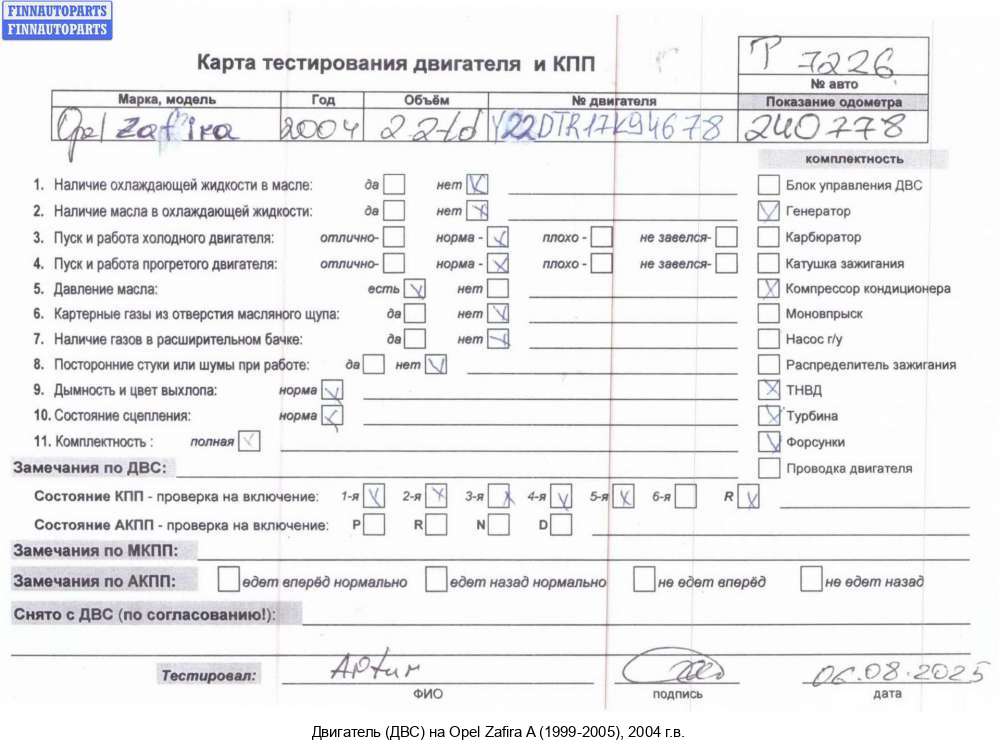 FINNAUTOPARTS
FINNAUTOPARTS
Карта тестирования двигателя и КПП
T 7226
№ авто
Марка, модель Год Объём № двигателя Показание одометра
Opel Zafira 2004 2.2td Y22DTR17K94678 240778
комплектность
1. Наличие охлаждающей жидкости в масле: да нет Блок управления ДВС
2. Наличие масла в охлаждающей жидкости: да нет Генератор
3. Пуск и работа холодного двигателя: отлично- норма - плохо - не завелся- Карбюратор
4. Пуск и работа прогретого двигателя: отлично- норма - плохо - не завелся- Катушка зажигания
5. Давление масла: есть нет Компрессор кондиционера
6. Картерные газы из отверстия масляного щупа: да нет Моновпрыск
7. Наличие газов в расширительном бачке: да нет Насос г/у
8. Посторонние стуки или шумы при работе: да нет Распределитель зажигания
9. Дымность и цвет выхлопа: норма ТНВД
10. Состояние сцепления: норма Турбина
11. Комплектность : полная Форсунки
Замечания по ДВС: Проводка двигателя
Состояние КПП - проверка на включение: 1-я 2-я 3-я 4-я 5-я 6-я R
Состояние АКПП - проверка на включение: P R N D
Замечания по МКПП:
Замечания по АКПП: едет вперёд нормально едет назад нормально не едет вперёд не едет назад
Снято с ДВС (по согласованию!):
Тестировал: Artur 06.08.2025
ФИО подпись дата
Двигатель (ДВС) на Opel Zafira A (1999-2005), 2004 г.в.